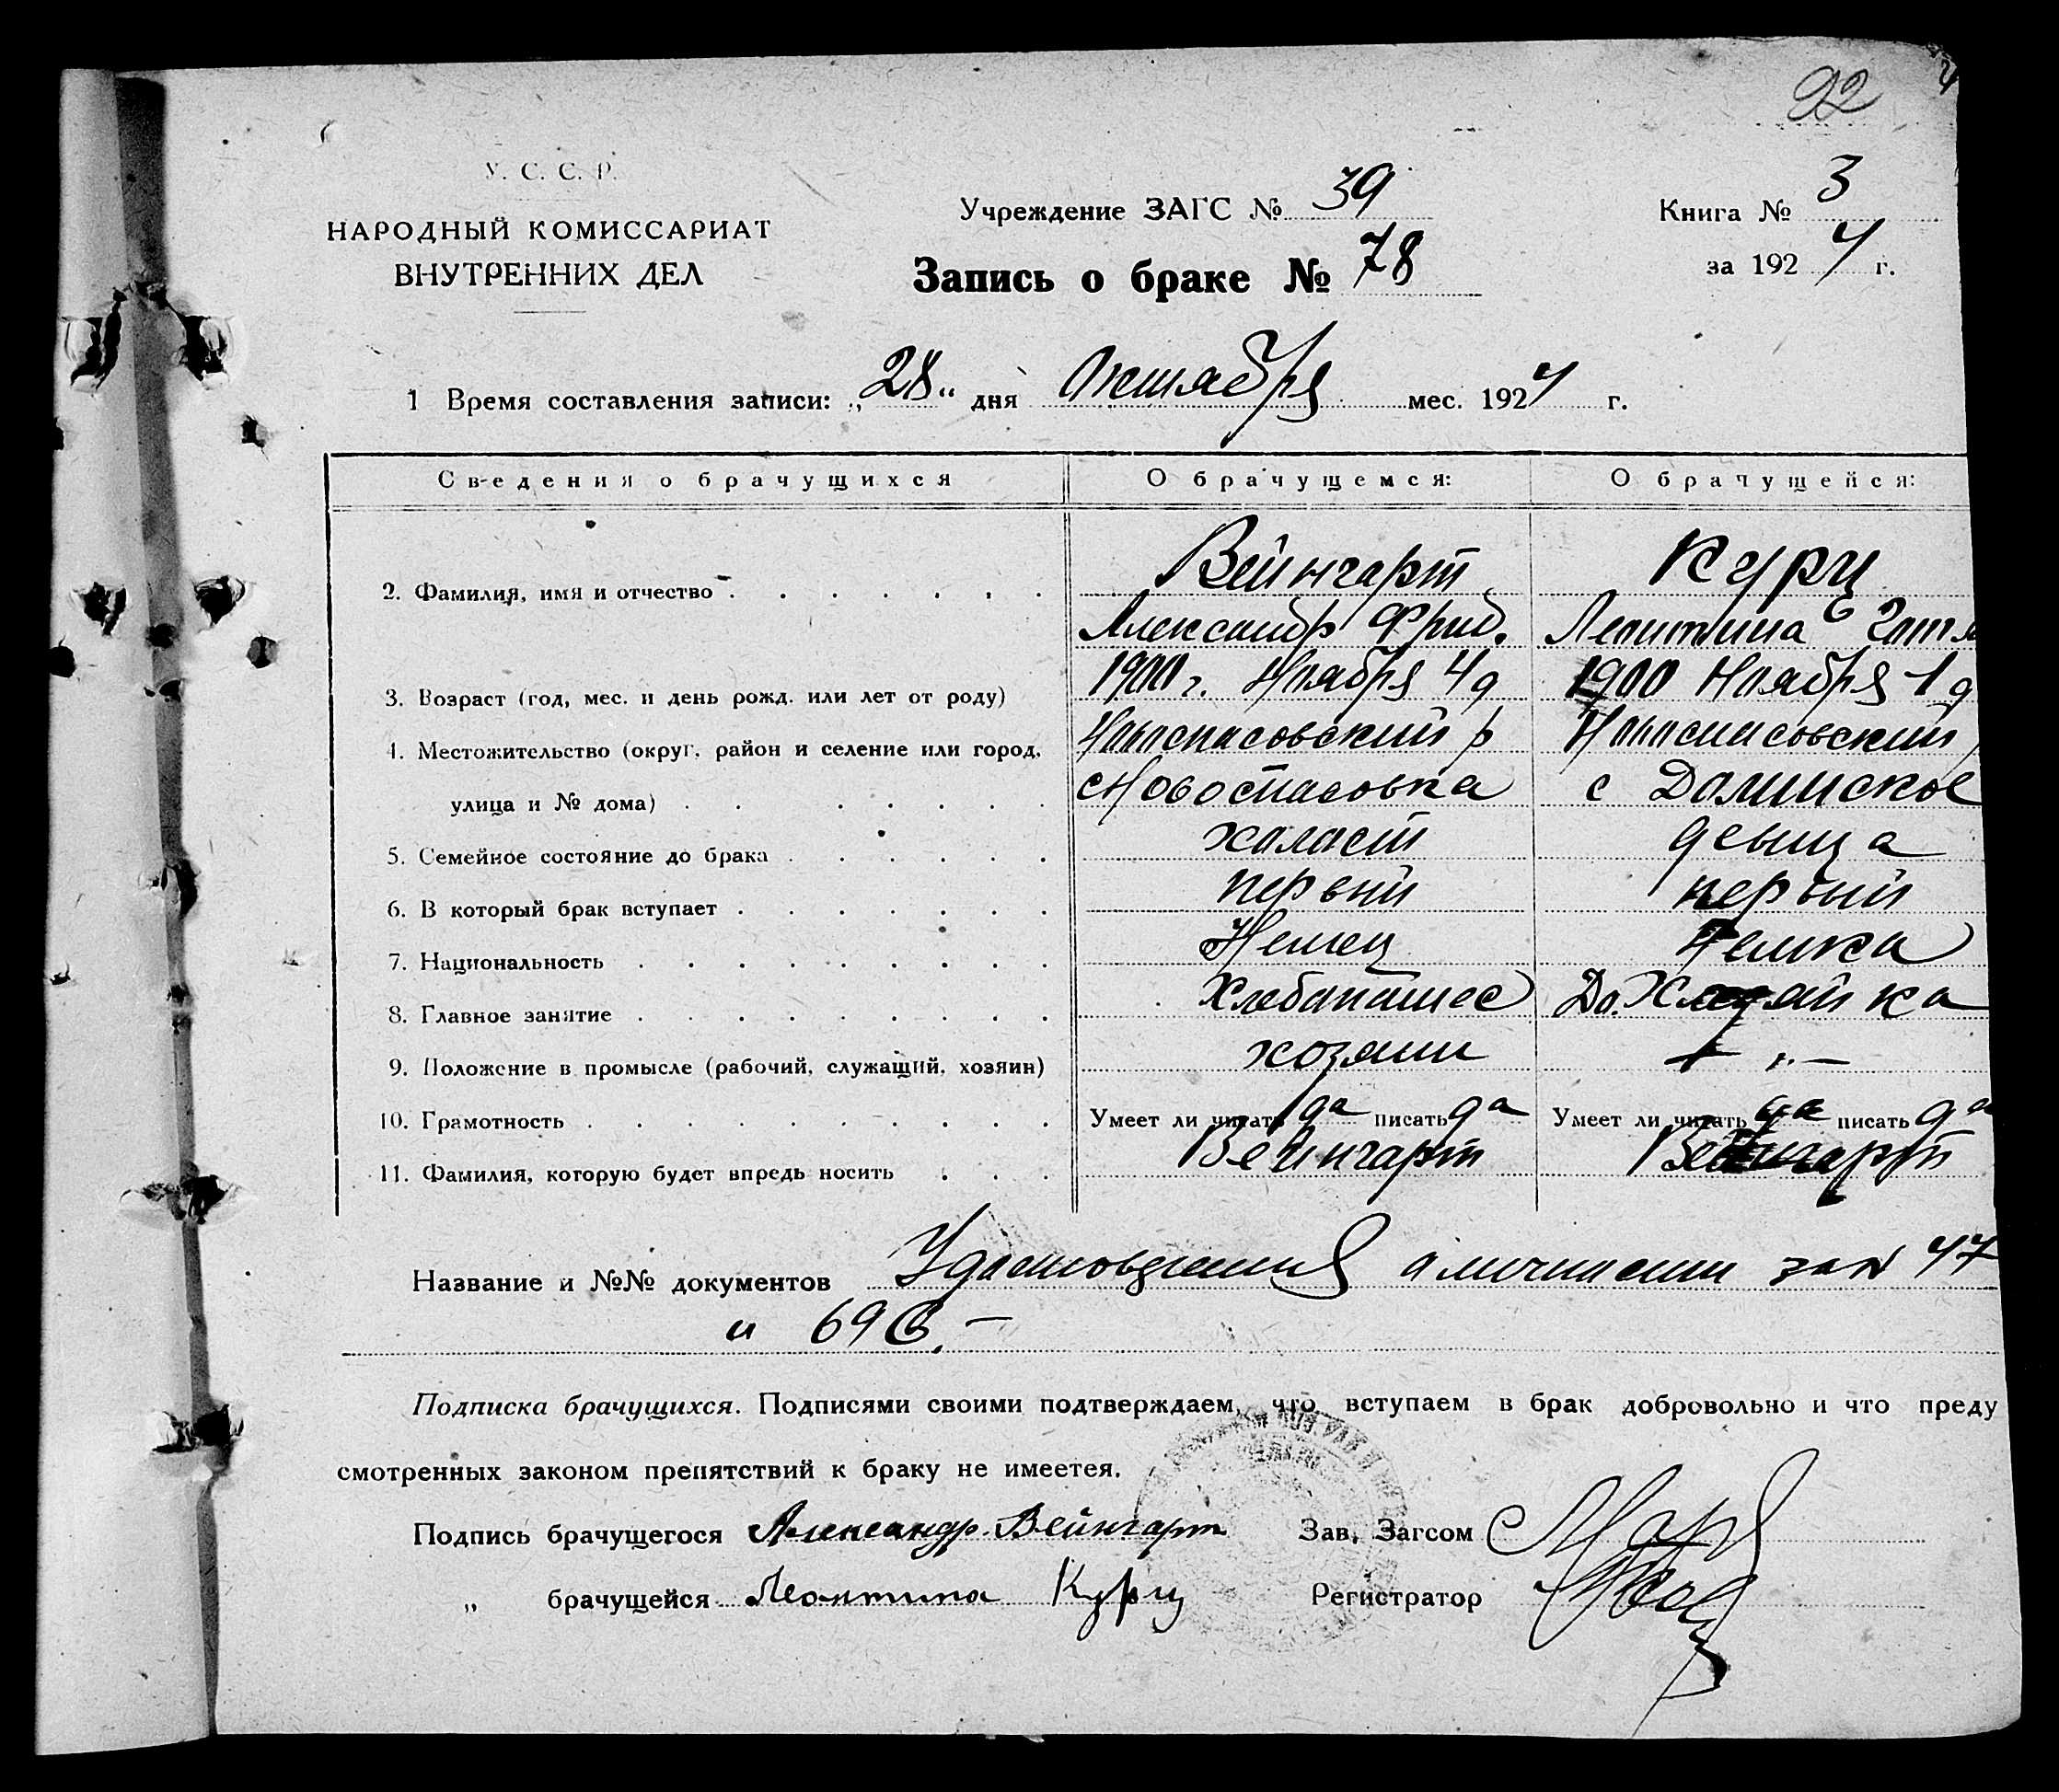 22
У. С. С. Р.
НАРОДНЫЙ КОМИССАРИАТ
ВНУТРЕННИХ ДЕЛ
Учреждение ЗАГС № 39
Книга № 3
Запись о браке № 78
за 1924 г.
1 Время составления записи: „28“ дня Октября мес. 1924 г.
Сведения о брачущихся О брачущемся: О брачущейся:
2. Фамилия, имя и отчество Вейнгарт Курц
Александр Фрид. Леонтина Готл
3. Возраст (год, мес. и день рожд. или лет от роду) 1900 г. Ноября 4 д 1900 Ноября 1 д
4. Местожительство (округ, район и селение или город, Новоспасовский р Новоспасовский р
улица и № дома) с Новоспасовка с Долинское
5. Семейное состояние до брака холост девица
6. В который брак вступает первий первый
7. Национальность Немец Немка
8. Главное занятие Хлебопашес До. Хозяйка
9. Положение в промысле (рабочий, служащий, хозяин) хозяин — „ —
10. Грамотность Умеет ли читать да писать да Умеет ли читать да писать да
11. Фамилия, которую будет впредь носить Вейнгарт Вейнгарт
Название и №№ документов Удостоверения о личности за № 47
и 696. —
Подписка брачущихся. Подписями своими подтверждаем, что вступаем в брак добровольно и что преду
смотренных законом препятствий к браку не имеется.
Подпись брачущегося Александр Вейнгарт Зав. Загсом
„ брачущейся Леонтина Курц Регистратор